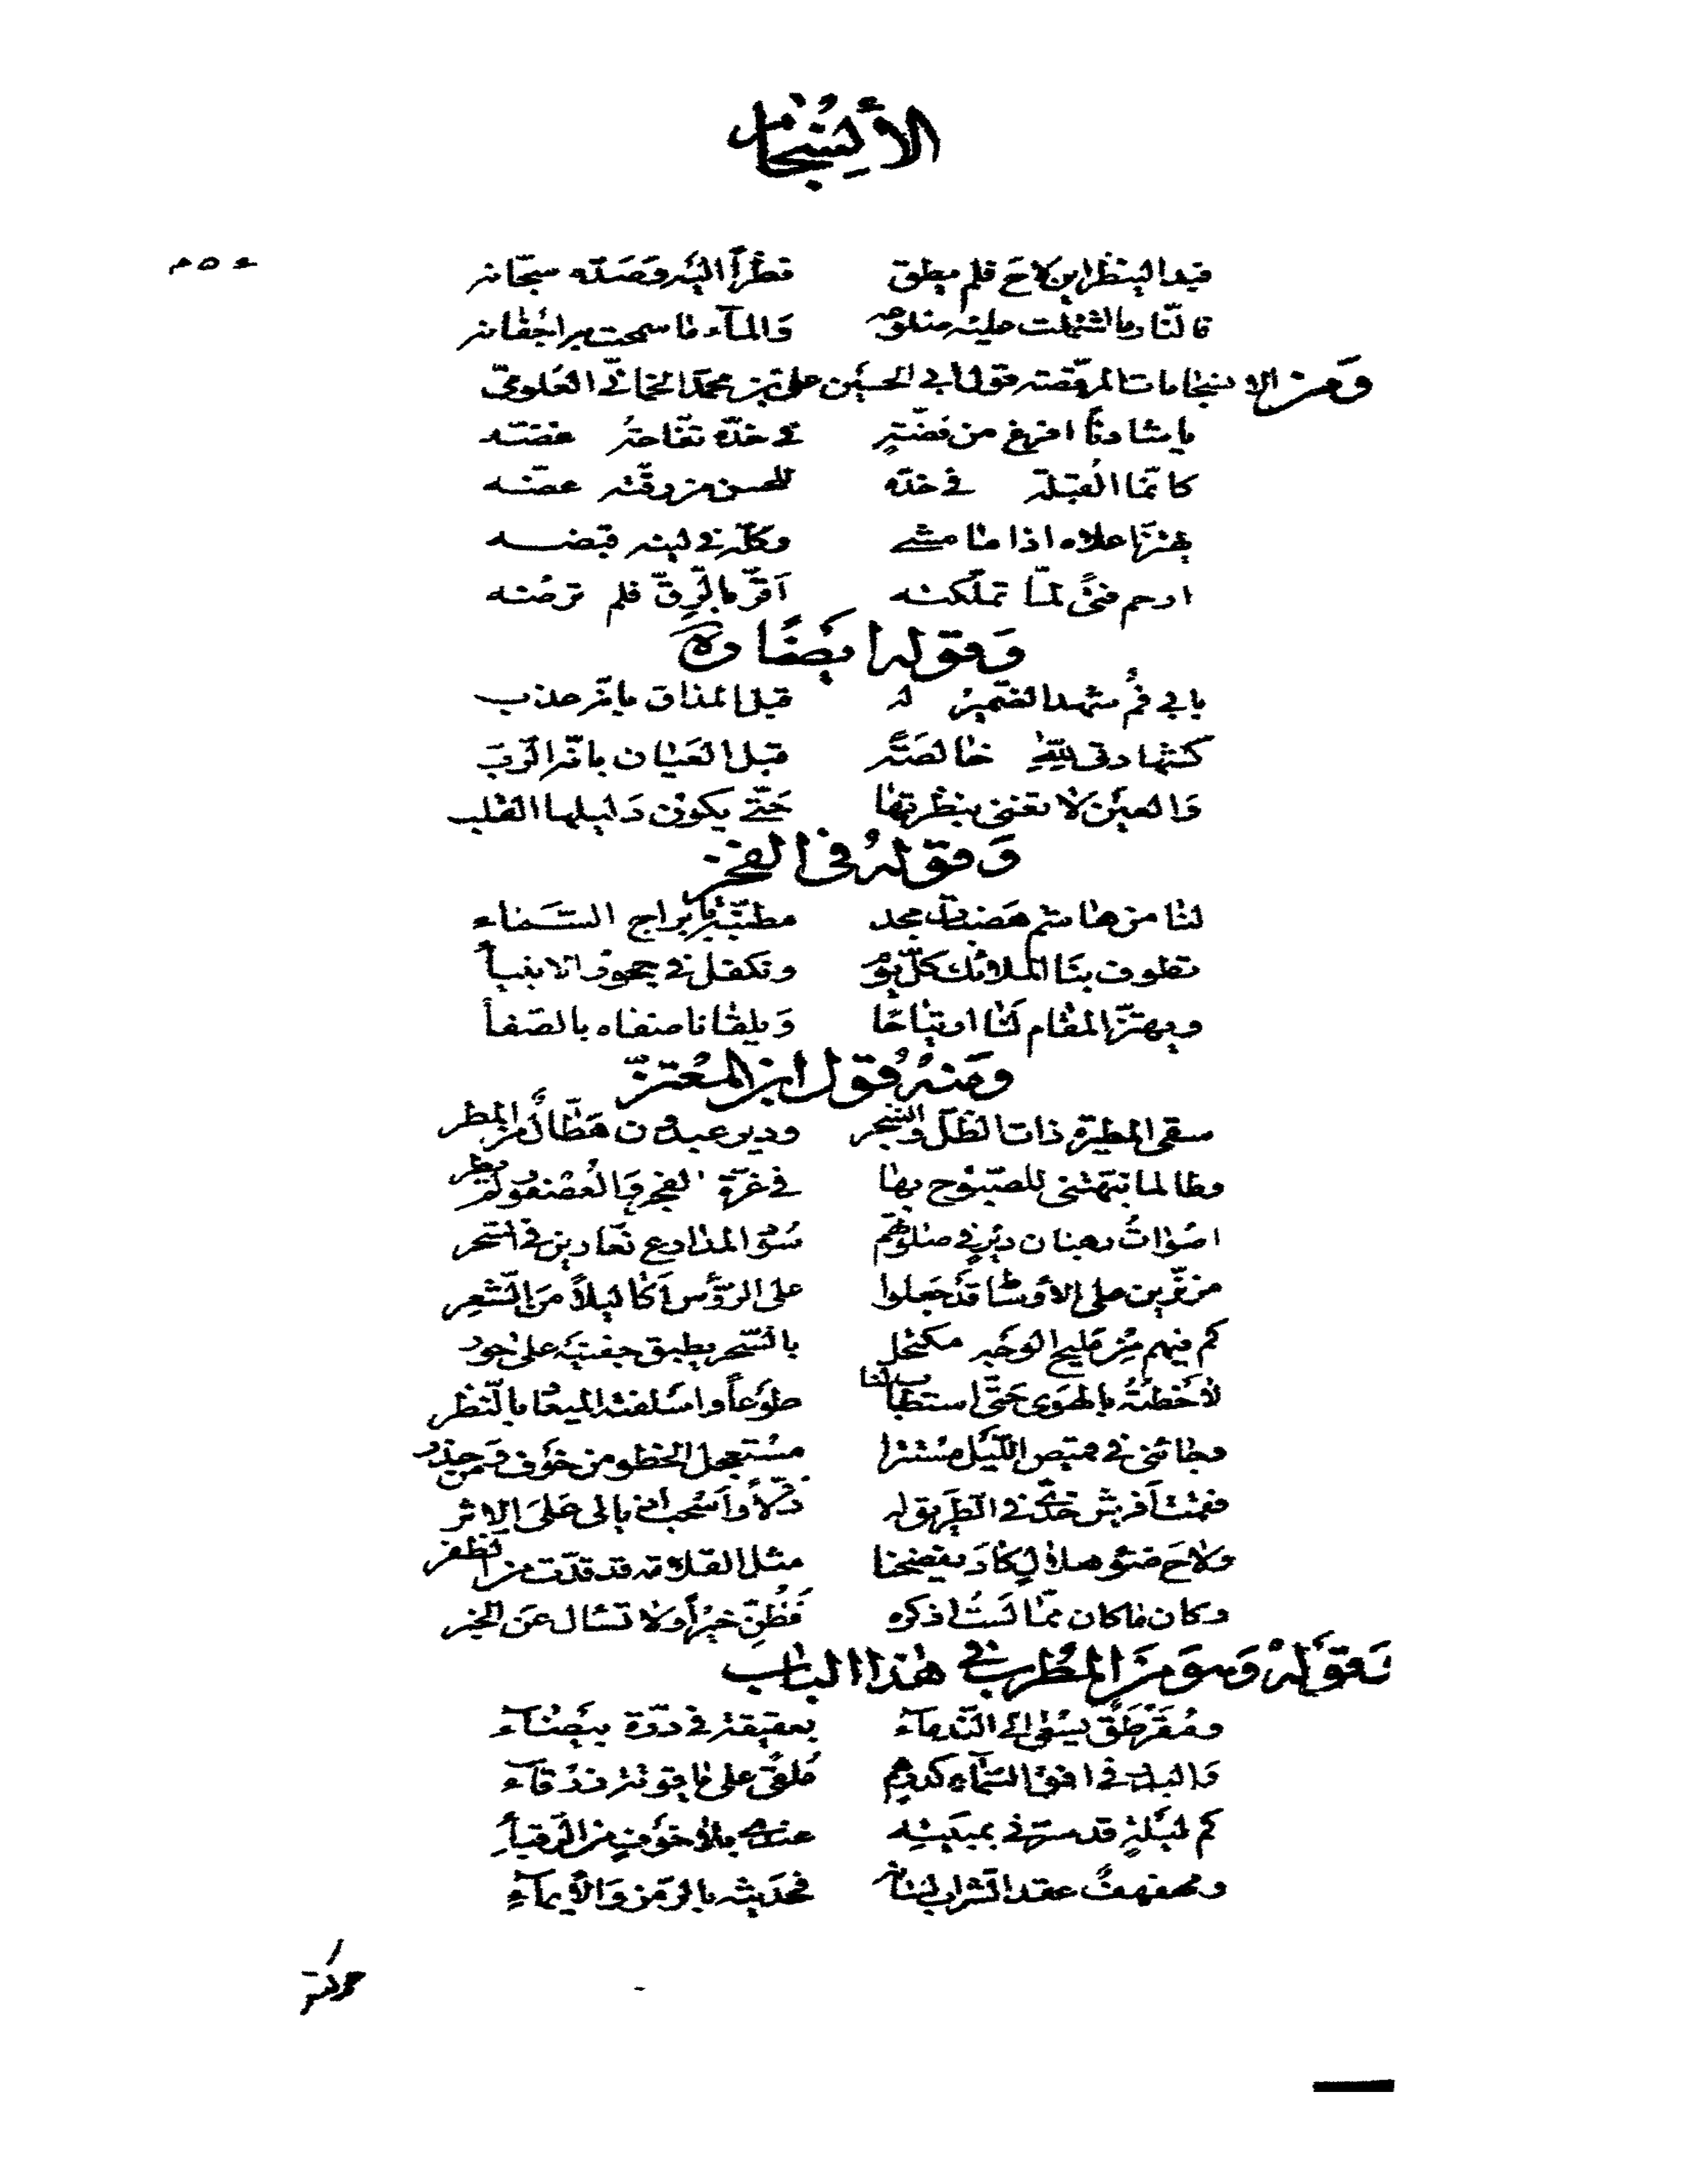 الأنسجام
فبدا لينظر اين لاح فلم يطق نظراً اليه وصدّه سبحانه
فالنار ما اشتملت عليه ضلوعه والمآء ما سمحت به اجفانه
ومن الانسجامات المرقصة قول ابي الحسين علي بن محمد الحماني العلوي
يا شادناً افرغ من فضّةٍ في خدّه تفّاحةٌ غضّه
كانّما القبلة في خدّه للحسن من رقّته عضّه
يهتزّ اعلاه اذا ما مشى وكلّه في لينه قبضه
ارحم فتىً لمّا تملّكته اقرّ بالرّقّ فلم ترضه
وقوله ايضًا
بابي فمٌ شهد الضّمير له قبل المذاق بانّه عذب
كشهادتي للّه خالصةً قبل العيان بانّه الرّب
والعين لا تغني بنظرتها حتّى يكون دليلها القلب
وقوله في الفخر
لنا من هاشم هضبات مجد مطنّبة بابراج السّماء
تطوف بنا الملائك كلّ يوم ونكفل في حجور الانبيآ
ويهتزّ المقام لنا ارتياحًا ويلقانا صفاه بالصّفا
ومنه قول ابن المعتزّ
سقى المطيرة ذات الظلّ والشجر ودير عبدون هطّالٌ من المطر
وطالما نبّهتني للصّبوح بها في غرّة الفجر والعصفور لم يطر
اصوات رهبان ديرٍ في صلوتهم سود المدارع نعّارين في السّحر
مزنّرين على الأوساط قد جعلوا على الرّؤس اكاليلاً من الشّعر
كم فيهم من مليح الوجه مكتحل بالسّحر يطبق جفنيه على حور
لاحظته بالهوى حتّى استطاب لنا طوعاً واسلفنه الميعاد بالنّظر
وجائني في قميص اللّيل مستترا مستعجل الخطو من خوف ومن حذر
فقمت افرش خدّي في الطّريق له ذلّاً واسحب اذيالي على الاثر
ولاح ضوء هلالٍ كاد يفضحنا مثل القلامة قد قدّت من الظفر
وكان ما كان ممّا لست اذكره فظنّ خيراً ولا تسئال عن الخبر
وقوله وهو من المطرب في هذا الباب
ومقرطق يسعى الى النّدمآء بعقيقة في درّة بيضآء
والبدر في افق السّمآء كدرهم ملقىً على ياقوتة زرقآء
كم ليلةٍ قد سرّني بمبيته عندي بلا خوفٍ من الرّقبآء
ومهفهفٌ عقد الشّراب لسانه فحديثه بالرّمز والأيمآء